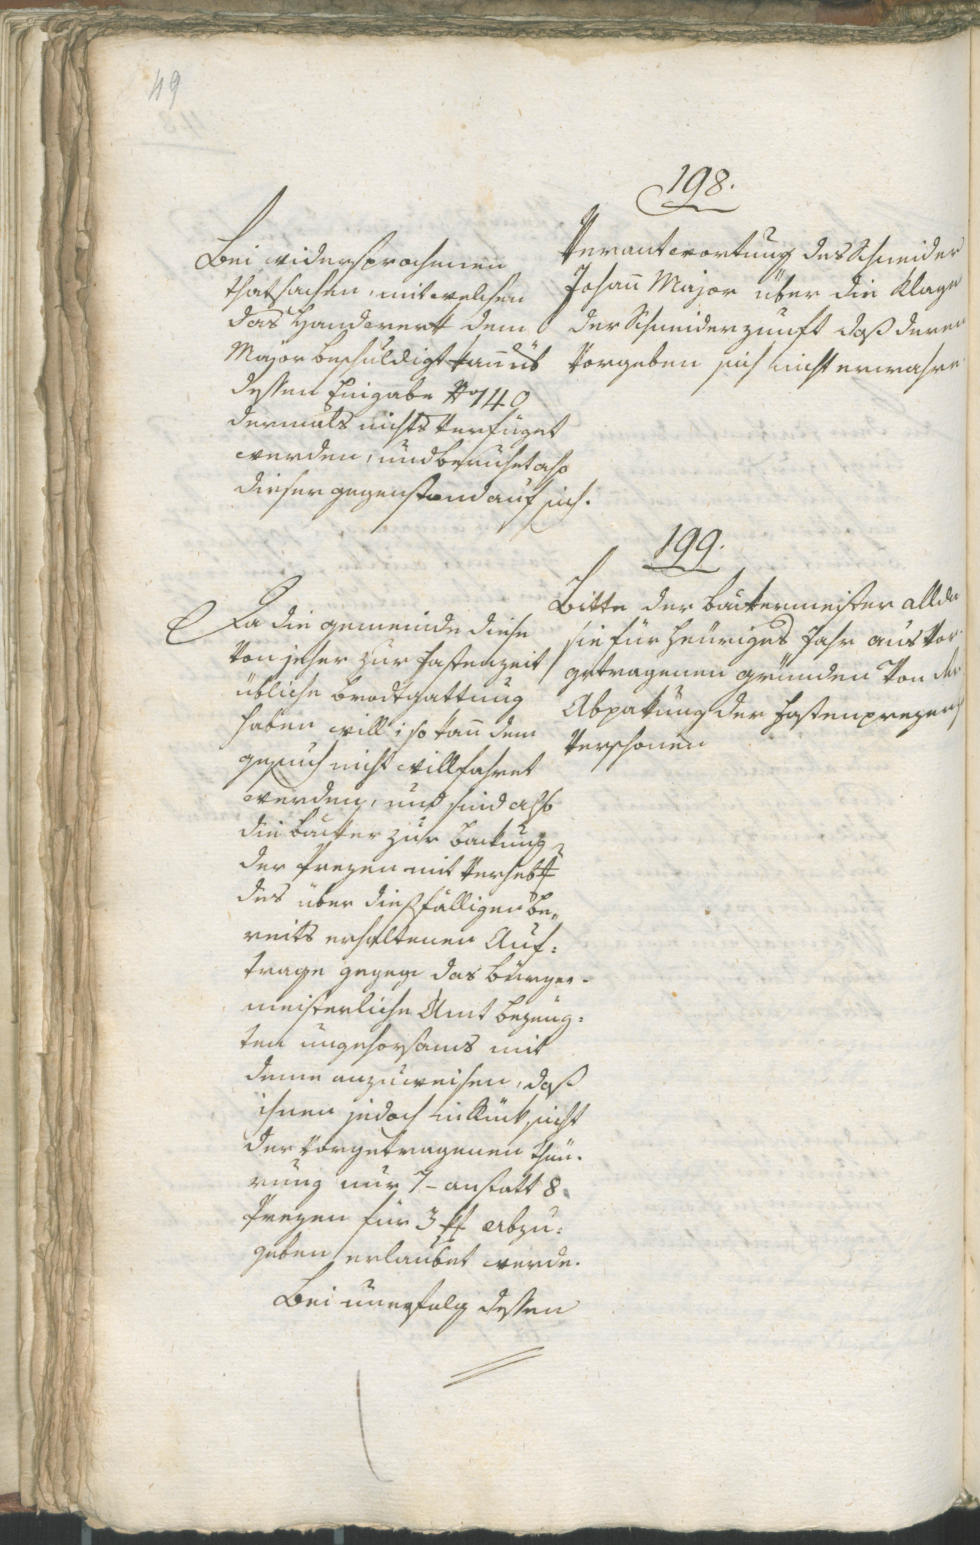 49
198.
Verantwortung des Schneider
Johan̄ Major über die Klage
der Schneiderzunft daß deren
Vorgeben sich nicht erwahre
Bei widersprochenen
thatsachen, mit welchen
das Handwerk dem
Major beschuldigt kan̄ üb
dessen Eingabe No 140
dermals nichts verfüget
werden, und beruhet also
dieser gegenstand auf sich.
199.
Bitte der Bäckermeister allda
sie für heüriges Jahr aus vor-
getragenen gründen von der
Abpakung der Fastenprezen
verschonen
Da die gemeinde diese
von jeher zur Fastenzeit
übliche brodtgattung
haben will; so kan̄ dem
gesuch nicht willfahret
werden, und sind also
die bäcker zur backung
der Prezen mit verhebt
des über dießfälligen be,,
reits erhaltenen Auf:
trage gegen das bürger-
meisterliche Amt bezeug:
ten ungehorsams mit
deme anzuweisen, daß
ihnen jedoch in Rücksicht
der vorgetragenen theü-
rung nur 7- anstatt 8
Prezen für 3 abzu:
geben erlaubet werde.
Bei unerfolg dessen